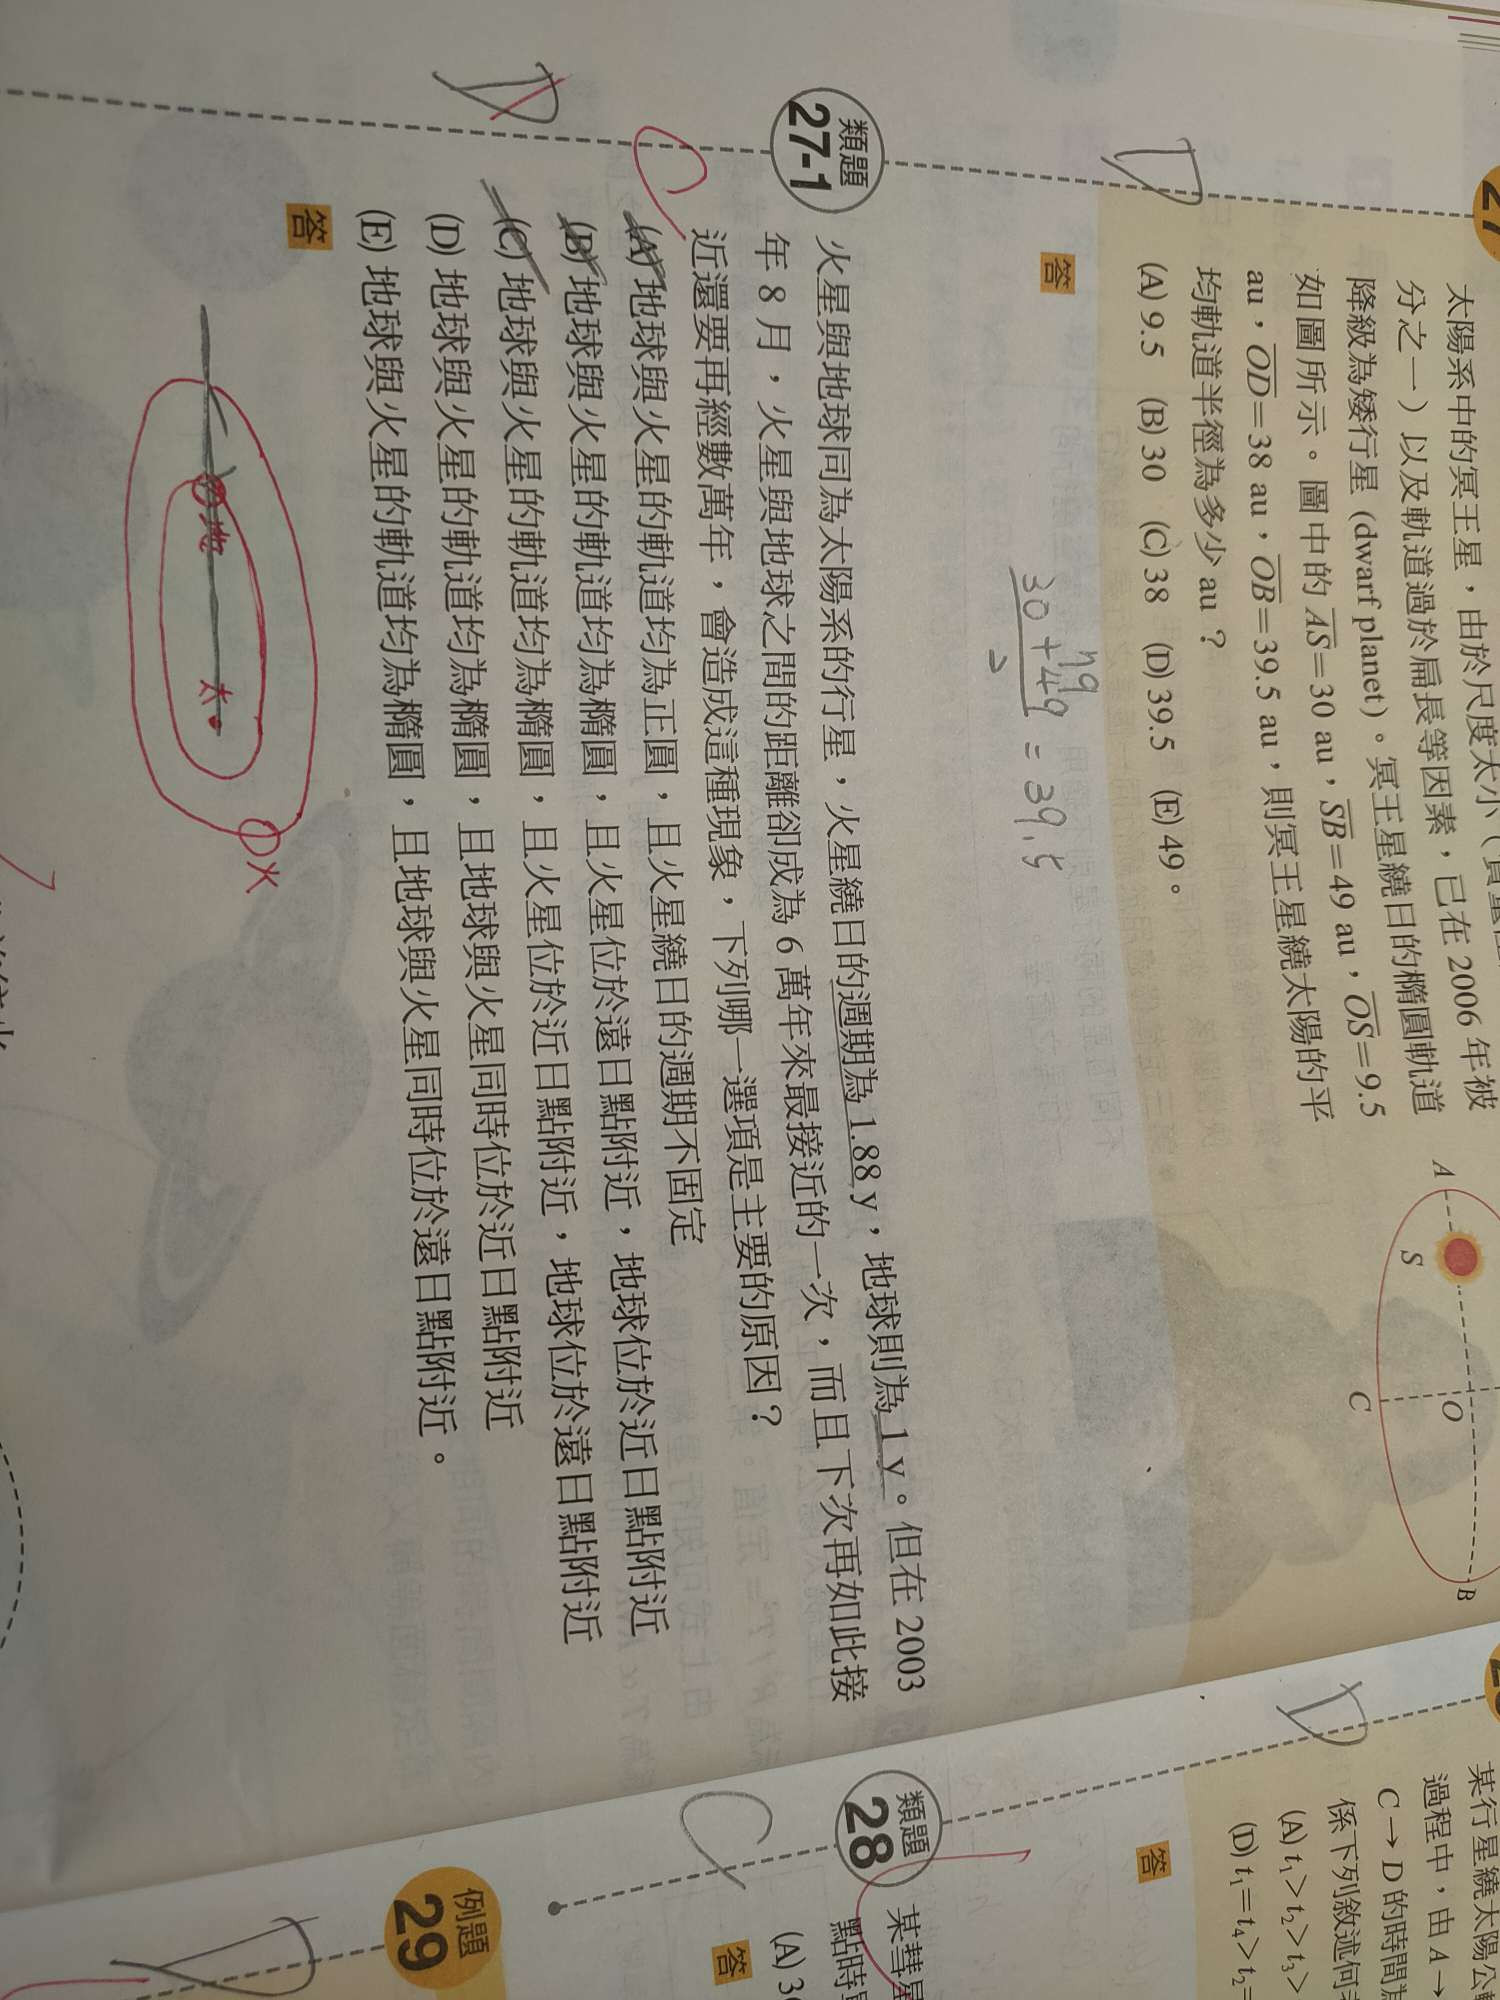 27
太陽系中的冥王星，由於尺度太小（質量
分之一）以及軌道過於扁長等因素，已在 2006 年被
降級為矮行星 (dwarf planet)。冥王星繞日的橢圓軌道
如圖所示。圖中的 AS=30 au，SB=49 au，OS=9.5
au，OD=38 au，OB=39.5 au，則冥王星繞太陽的平
均軌道半徑為多少 au？
(A) 9.5 (B) 30 (C) 38 (D) 39.5 (E) 49。
D
答
A
S
O
C
B
79
30+49
2
=39.5
類題
27-1
火星與地球同為太陽系的行星，火星繞日的週期為 1.88 y，地球則為 1 y。但在 2003
年 8 月，火星與地球之間的距離卻成為 6 萬年來最接近的一次，而且下次再如此接
近還要再經數萬年，會造成這種現象，下列哪一選項是主要的原因？
(A) 地球與火星的軌道均為正圓，且火星繞日的週期不固定
(B) 地球與火星的軌道均為橢圓，且火星位於遠日點附近，地球位於近日點附近
(C) 地球與火星的軌道均為橢圓，且火星位於近日點附近，地球位於遠日點附近
(D) 地球與火星的軌道均為橢圓，且地球與火星同時位於近日點附近
(E) 地球與火星的軌道均為橢圓，且地球與火星同時位於遠日點附近。
D
C
答
地
太
火
D
某行星繞太陽公轉
過程中，由 A→
C→D 的時間為
係下列敘述何者
(A) t₁>t₂>t₃>
(D) t₁=t₄>t₂=
答
類題
28
C
某彗星
點時
(A) 3
答
例題
29
D